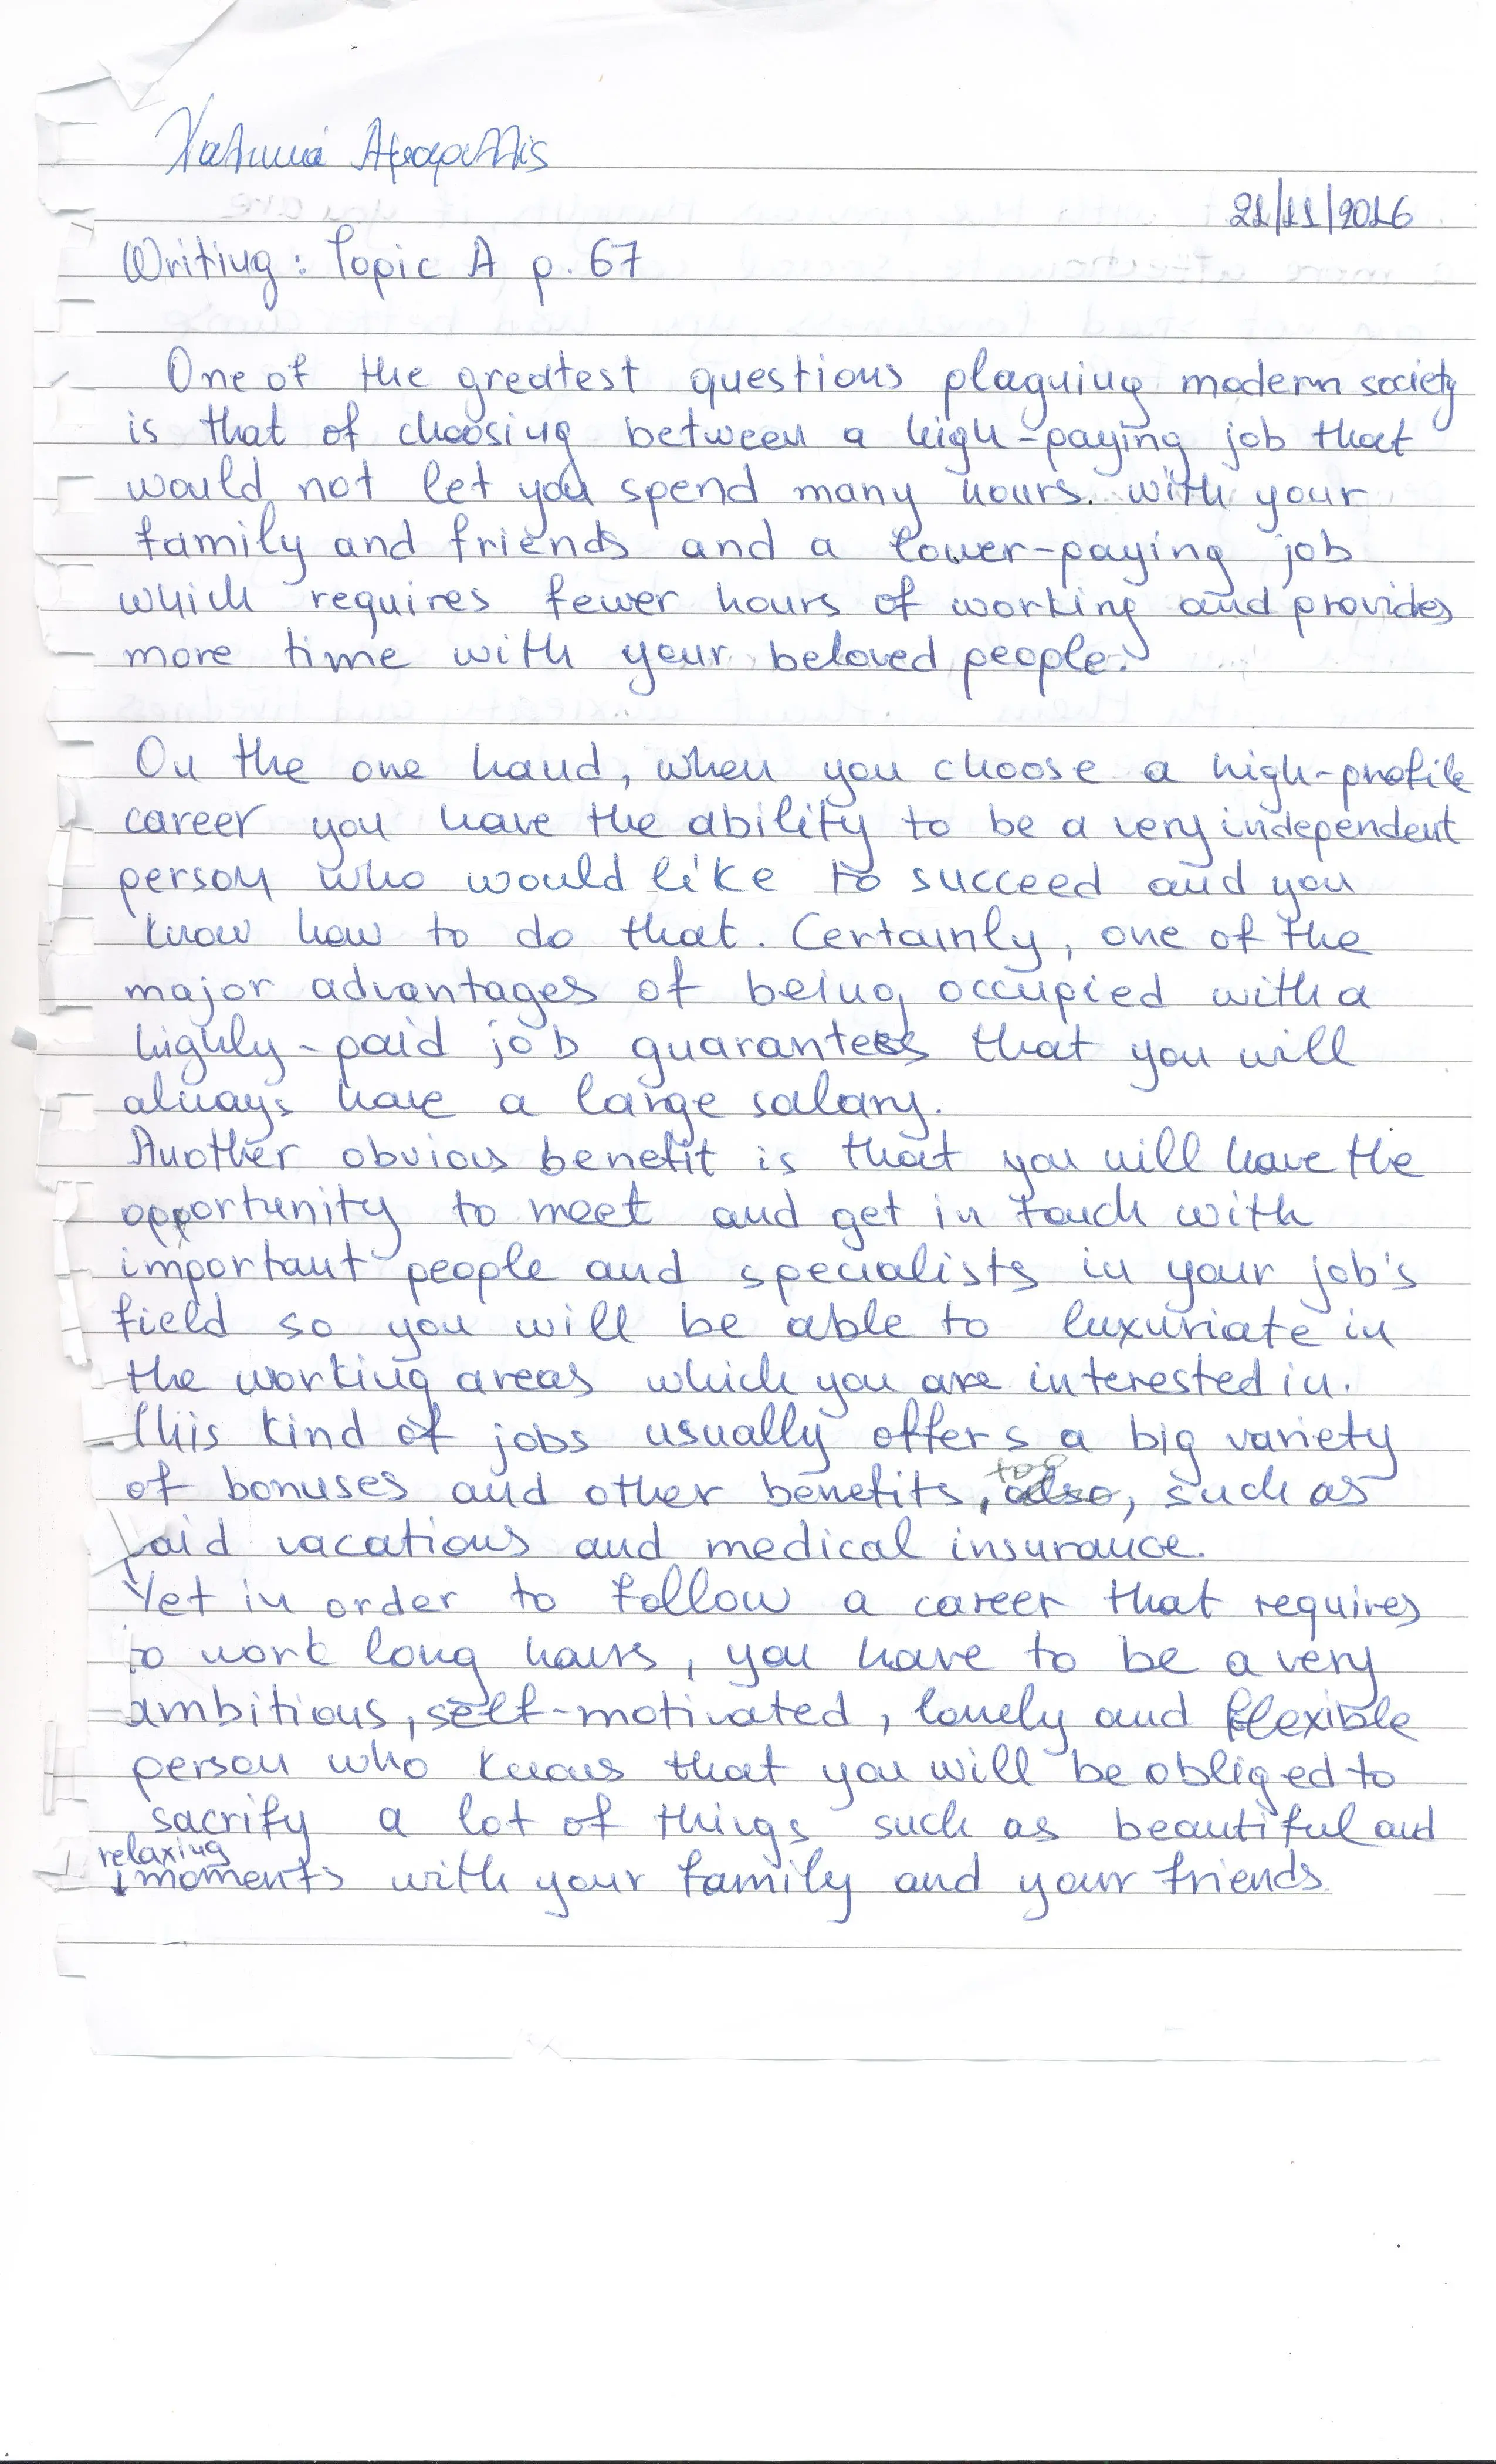 21/11/2016
Writing: Topic A p. 67
One of the greatest questions plaguing modern society
is that of choosing between a high-paying job that
would not let you spend many hours. with your
family and friends and a lower-paying job
which requires fewer hours of working and provides
more time with your beloved people.
On the one hand, when you choose a high-profile
career you have the ability to be a very independent
person who would like to succeed and you
know how to do that. Certainly, one of the
major advantages of being occupied with a
highly-paid job guarantees that you will
always have a large salary.
Another obvious benefit is that you will have the
opportunity to meet and get in touch with
important people and specialists in your job's
field so you will be able to luxuriate in
the working areas which you are interested in.
This kind of jobs usually offers a big variety
too
of bonuses and other benefits, also, such as
paid vacations and medical insurance.
Yet in order to follow a career that requires
to work long hours, you have to be a very
ambitious, self-motivated, lonely and flexible
person who knows that you will be obliged to
sacrify a lot of things such as beautiful and
relaxing
moments with your family and your friends